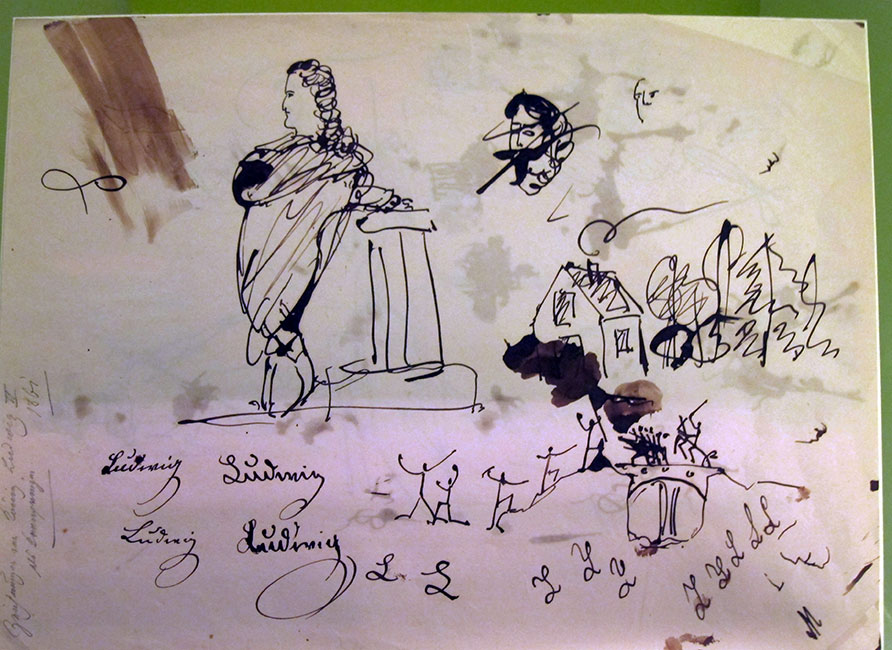 Ludwig Ludwig
Ludwig Ludwig
L L L L L L L L L L
M
Zeichnungen von König Ludwig II
als